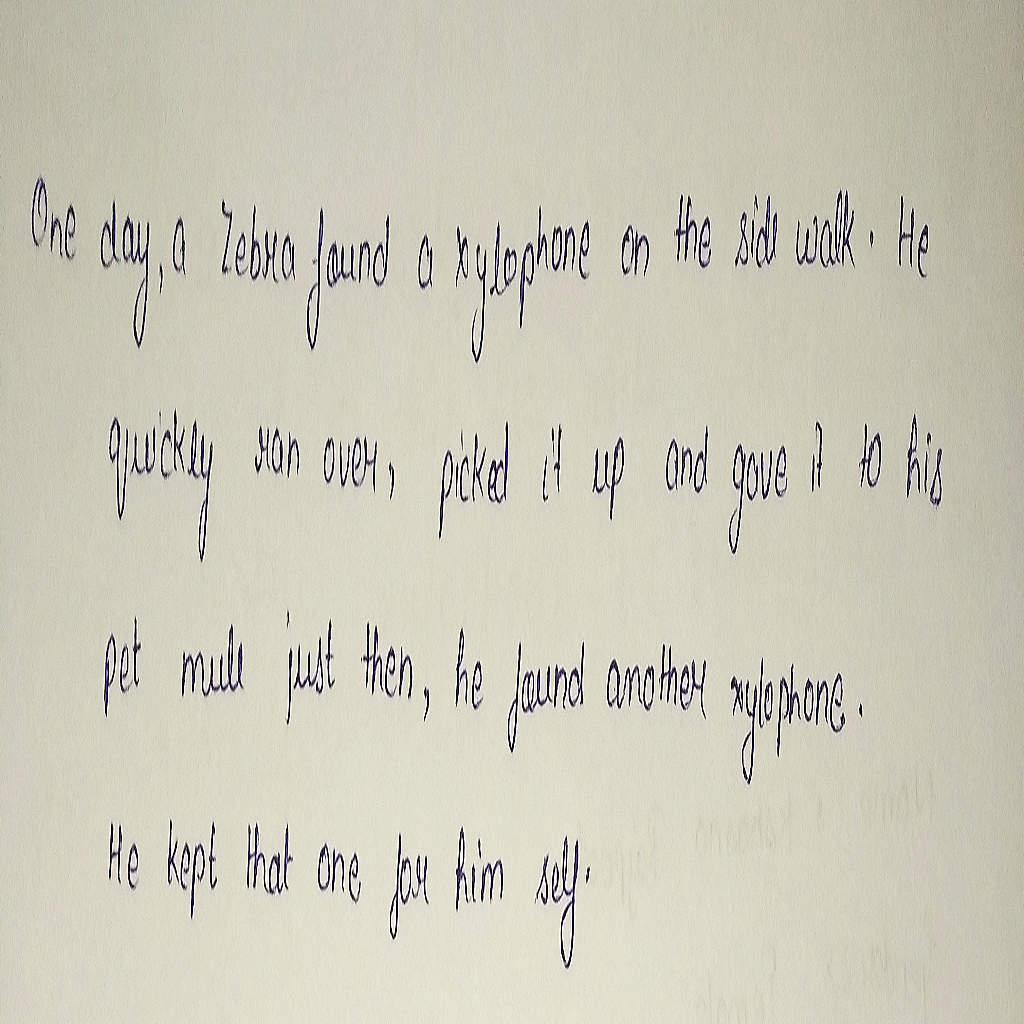 One day, a Zebra found a xylophone on the side walk. He
quickly ran over, picked it up and gave it to his
pet mule just then, he found another xylophone.
He kept that one for him self.